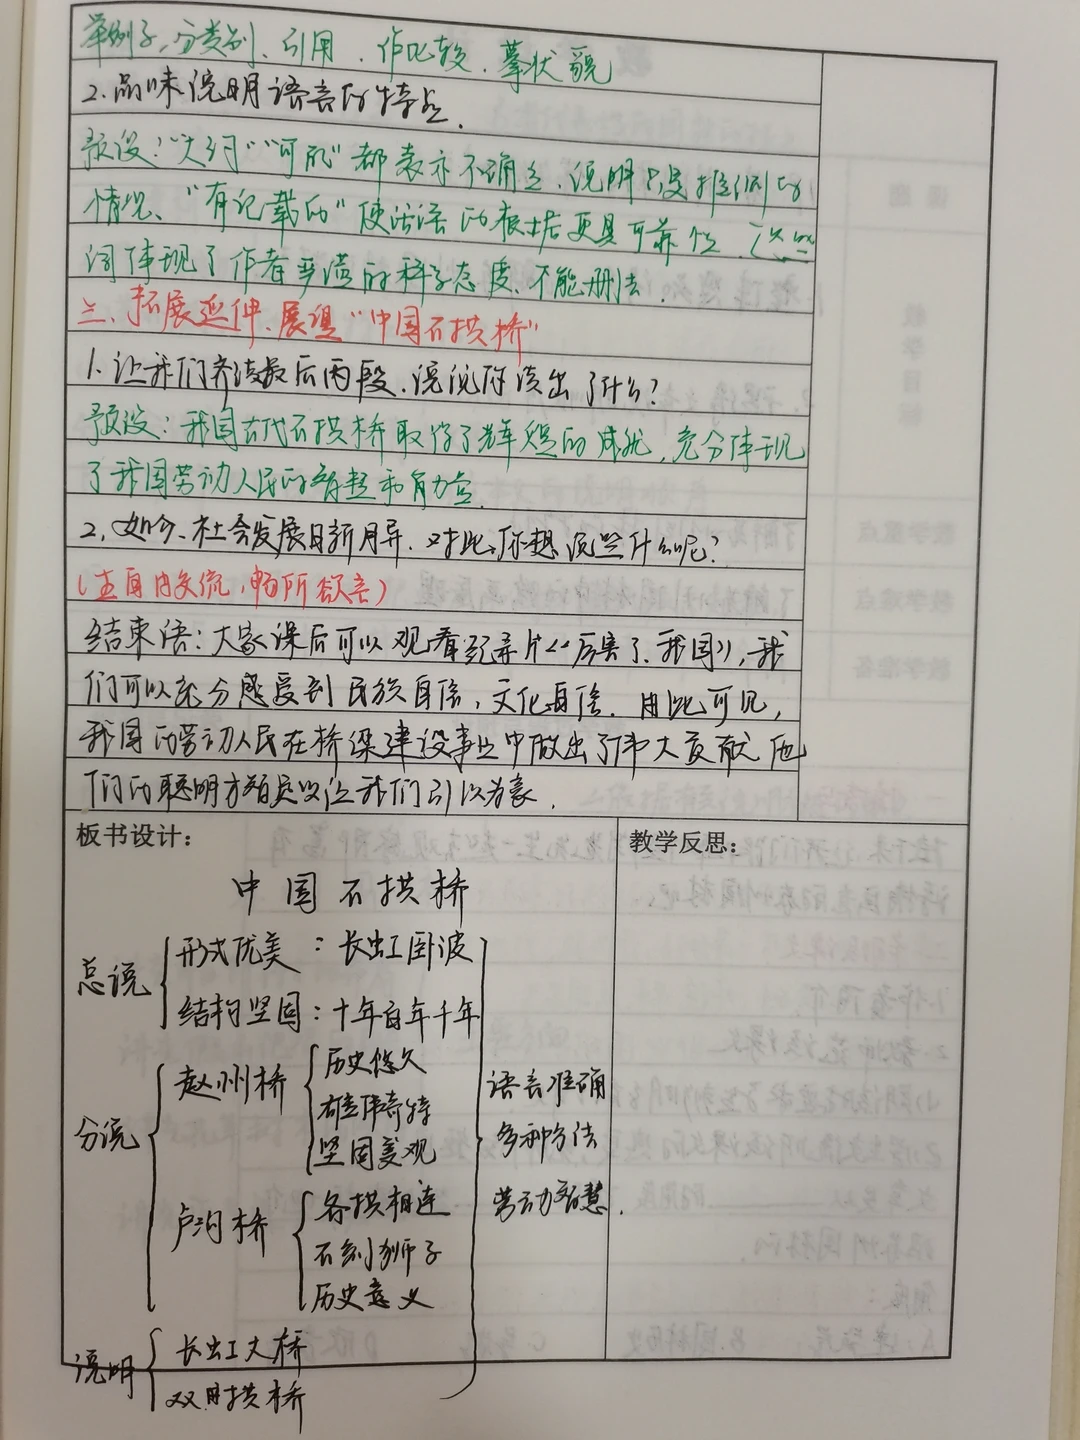 举例子、分类别、引用、作比较、摹状貌
2.品味说明语言的特点.
预设:“大约”“可能”都表示不确定、说明只是推测的
情况、“有记载的”使话语的根据更具可靠性.这些
词体现了作者严谨的科学态度、不能删去.
三、拓展延伸、展现“中国石拱桥”
1.让我们齐读最后两段.说说你读出了什么?
预设:我国古代石拱桥取得了辉煌的成就,充分体现
了我国劳动人民的智慧和力量.
2.如今、社会发展日新月异.对此、你想说些什么呢?
(生自由交流,畅所欲言)
结束语:大家课后可以观看纪录片《厉害了、我国》,我
们可以充分感受到民族自信,文化自信.由此可见,
我国的劳动人民在桥梁建设事业中做出了伟大贡献 他
们的聪明才智足以让我们引以为豪.
板书设计:
中国石拱桥
总说
形式优美:长虹卧波
结构坚固:十年百年千年
分说
赵州桥
历史悠久
雄伟奇特
坚固美观
卢沟桥
各拱相连
石刻狮子
历史意义
说明
长虹大桥
双曲拱桥
语言准确
多种方法
劳动智慧.
教学反思: